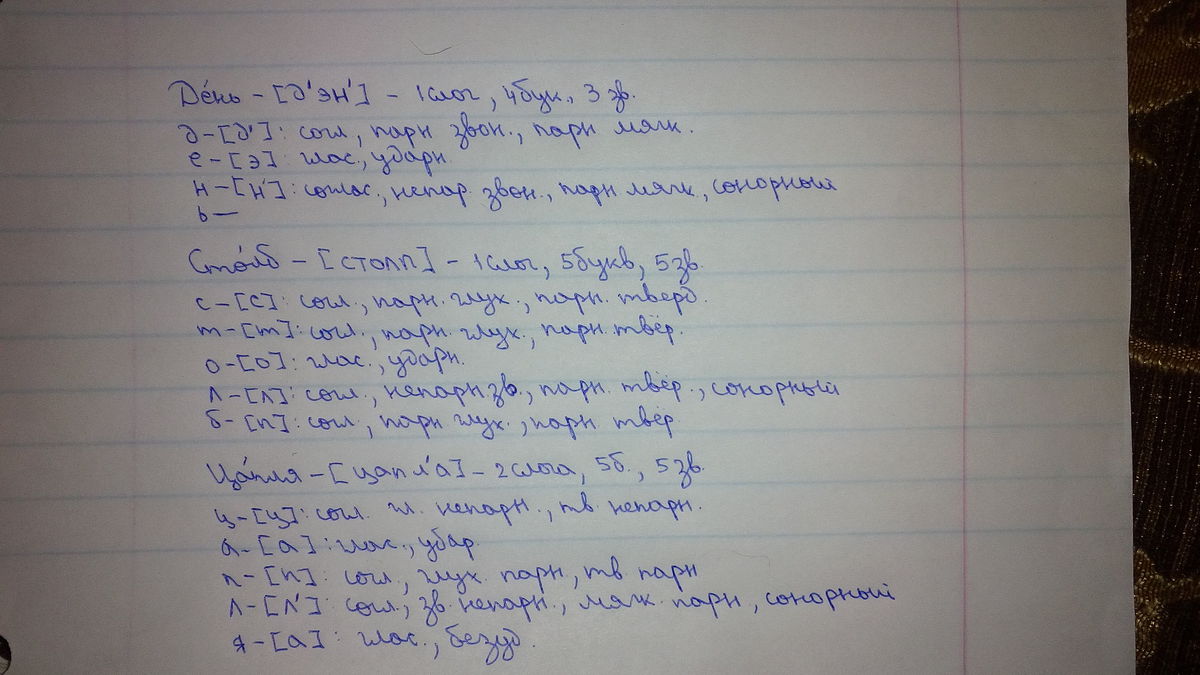 Де́нь – [д'эн'] – 1 слог, 4 бук., 3 зв.
д – [д']: согл, парн звон., парн мягк.
е – [э]: глас., ударн
н – [н']: соглас., непар. звон., парн мягк., сонорный
ь —
Сто́лб – [столп] – 1 слог, 5 букв, 5 зв.
с – [с]: согл., парн. глух., парн. тверд.
т – [т]: согл., парн. глух., парн. твёр.
о – [о]: глас., ударн.
л – [л]: согл., непарн зв., парн. твёр., сонорный
б – [п]: согл, парн глух., парн. твёр
Ца́пля – [цапл'а] – 2 слога, 5 б., 5 зв.
ц – [ц]: согл. гл. непарн., тв непарн.
а – [а]: глас., удар.
п – [п]: согл., глух. парн, тв парн
л – [л']: согл., зв. непарн., мягк. парн, сонорный
я – [а]: глас., безуд.